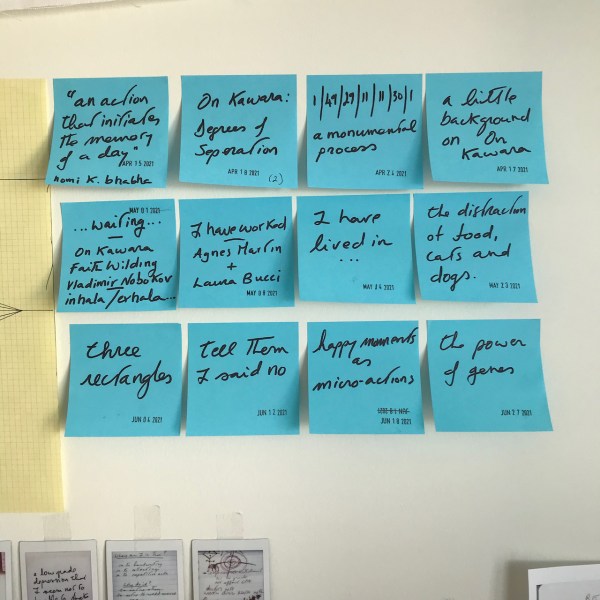 "an action
that initiates
the memory
of a day"
APR 15 2021
Homi K. bhabha
On Kawara:
Degrees of
Seperation
APR 18 2021
(2)
1/49/29/11/11/30/1
a monumental
process
APR 24 2021
a little
background
on On
Kawara
APR 17 2021
MAY 01 2021
...waiting...
On Kawara
Faith Wilding
Vladimir Nobokov
inhala/exhala...
I have worked
Agnes Martin
+
Laura Bucci
MAY 08 2021
I have
lived in
...
MAY 04 2021
the distraction
of food,
cats and
dogs.
MAY 23 2021
three
rectangles
JUN 04 2021
tell Them
I said no
JUN 12 2021
happy moments
as
micro-actions
JUN 18 2021
the power
of genes
JUN 27 2021
a low grade
depression that